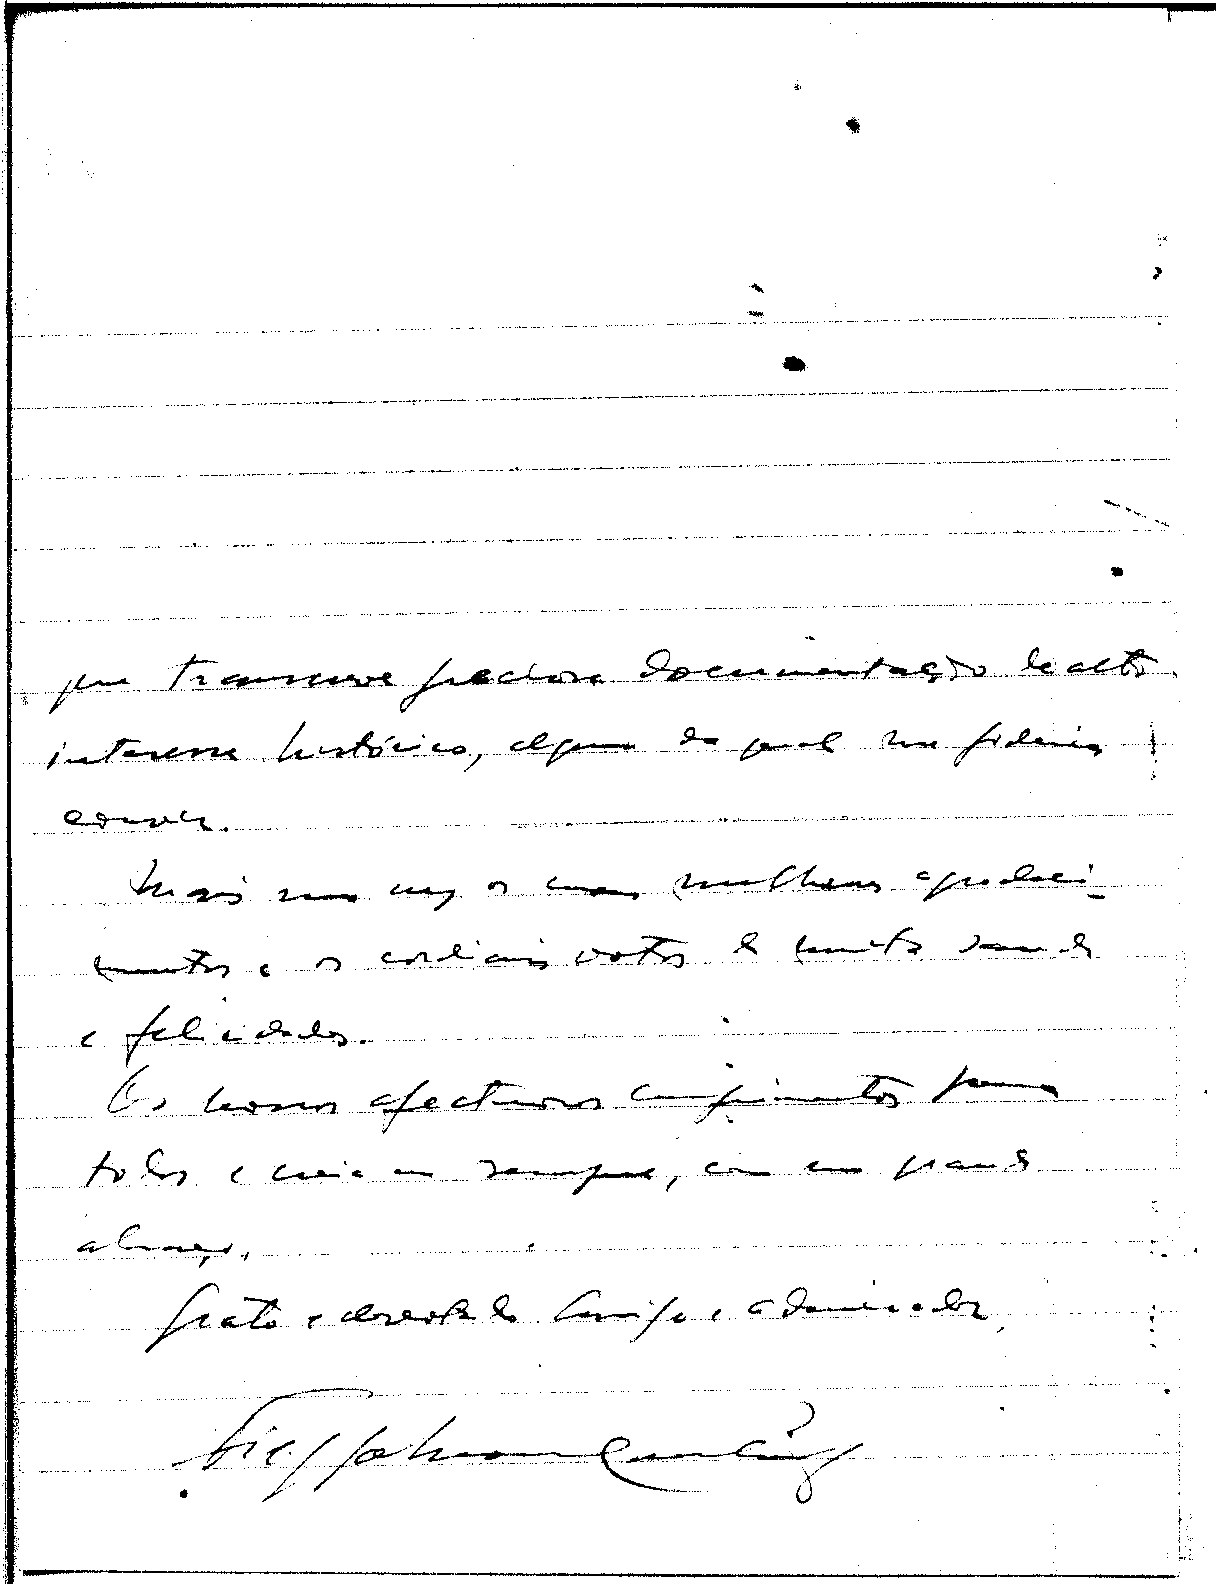 que transcreve preciosa documentação de alto
interesse histórico, alguma da qual me poderia
Mais uma vez os meus melhores agradeci-
mentos e os cordiais votos de muita saude
e felicidades.
Os nossos afectuosos cumprimentos para
todos e creia-me sempre, com um grande
abraço,
Grato e devotado amigo e admirador,